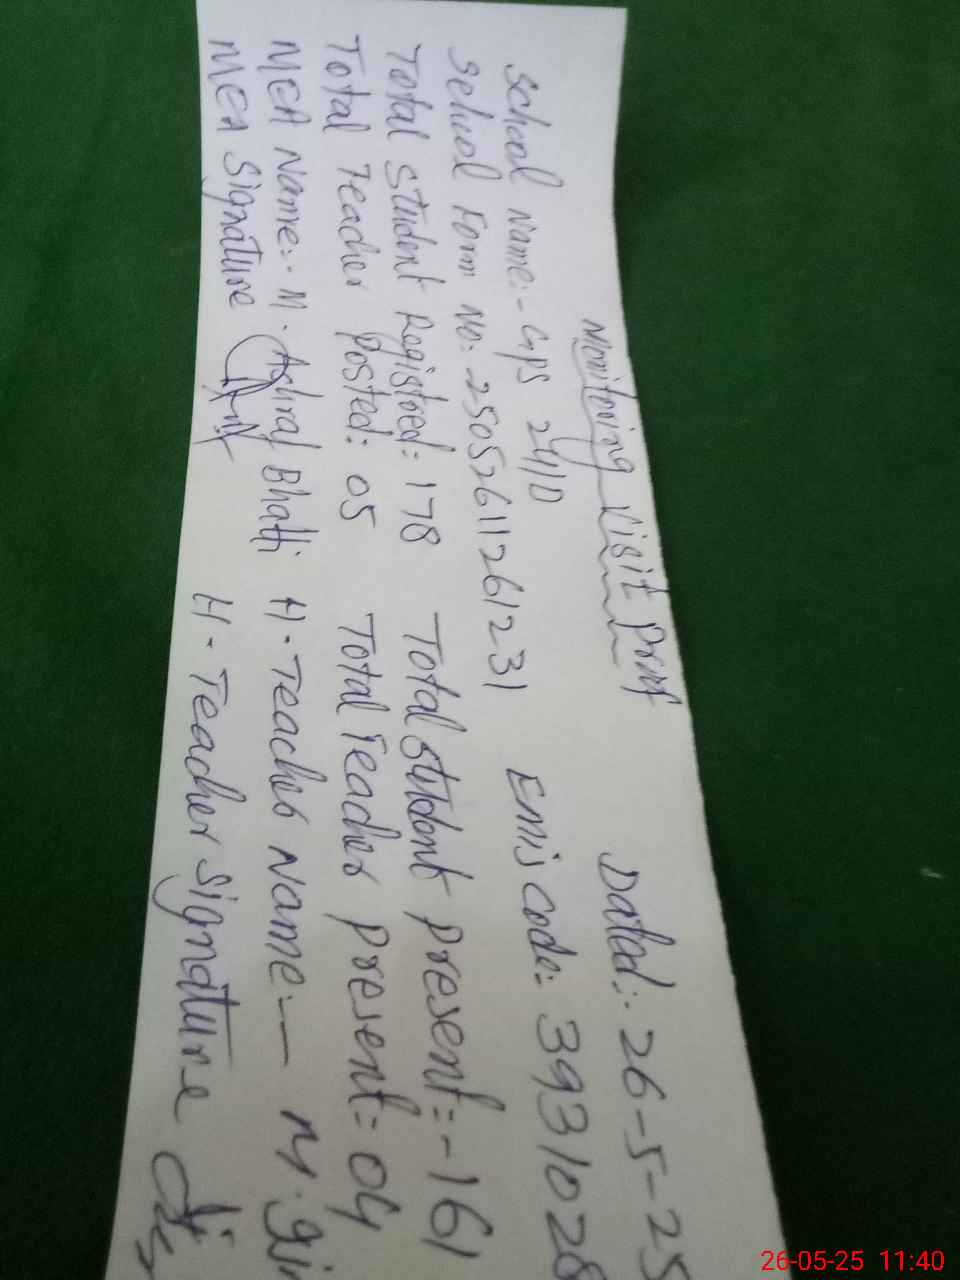 Monitoring Visit Proof Dated:- 26-5-25
School Name:- GPS 24/D
School Form No:- 25052611261231 Emis Code:- 3931028
Total Student Registred= 178 Total Student present=-161
Total Teacher Posted: 05 Total Teacher present= 04
MEA Name:- M. Ashraf Bhatti H-Teacher Name:- M.
MEA Signature H-Teacher Signature
26-05-25 11:40